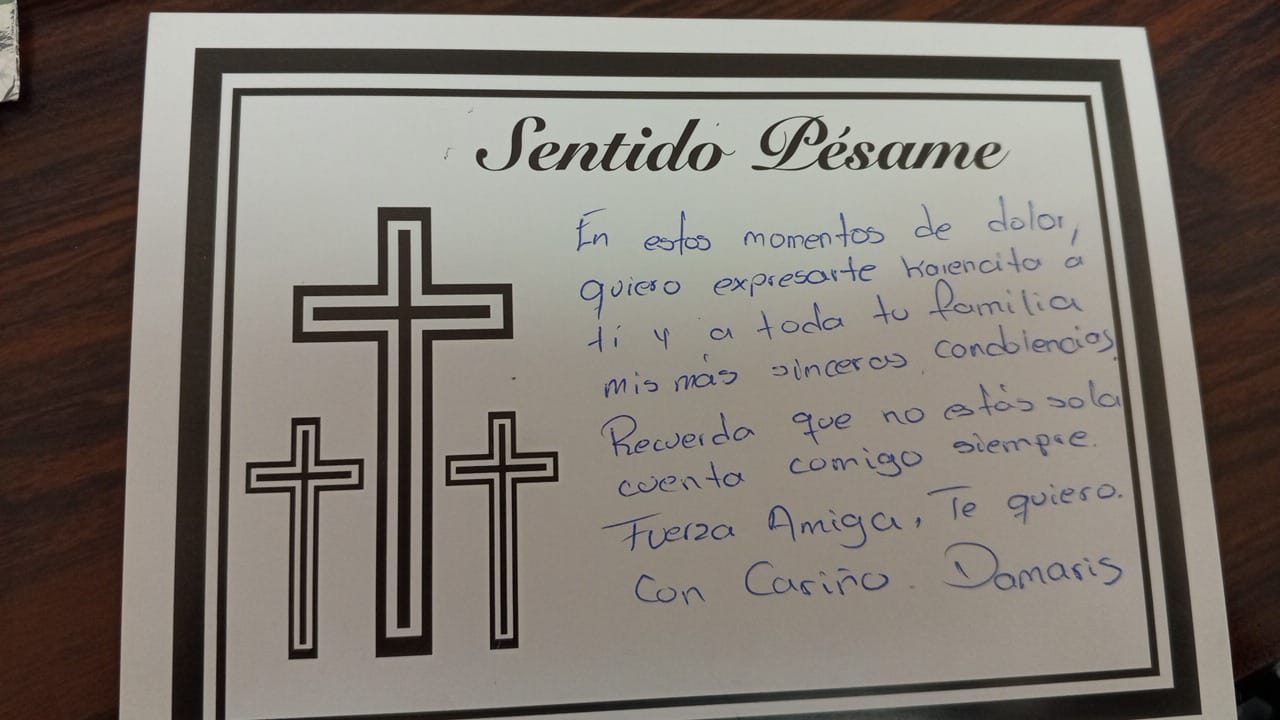 Sentido Pésame
En estos momentos de dolor,
quiero expresarte Karencita a
ti y a toda tu familia
mis más sinceras condolencias.
Recuerda que no estás sola
cuenta comigo siempre.
Fuerza Amiga, Te quiero.
Con Cariño. Damaris